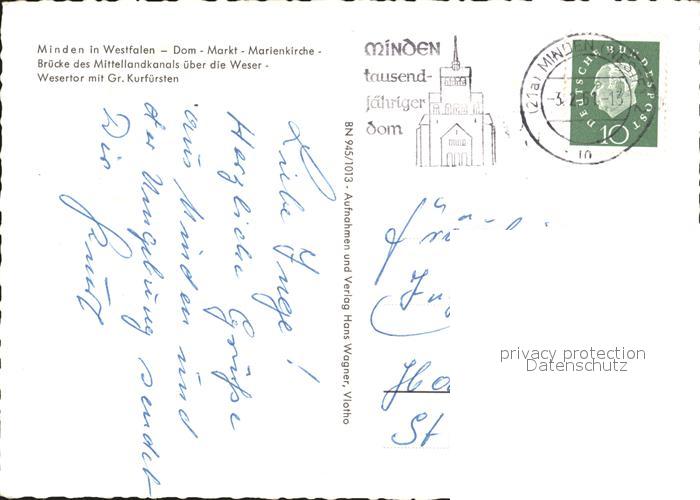 Minden in Westfalen – Dom - Markt - Marienkirche -
Brücke des Mittellandkanals über die Weser -
Wesertor mit Gr. Kurfürsten
MINDEN
tausend-
jähriger
dom
(21a) MINDEN
DEUTSCHE BUNDESPOST
10
BN 945/1013 - Aufnahmen und Verlag Hans Wagner, Vlotho
Liebe Inge!
Herzliche Grüße
aus Minden und
der Umgebung sendet
Dir
St
privacy protection
Datenschutz